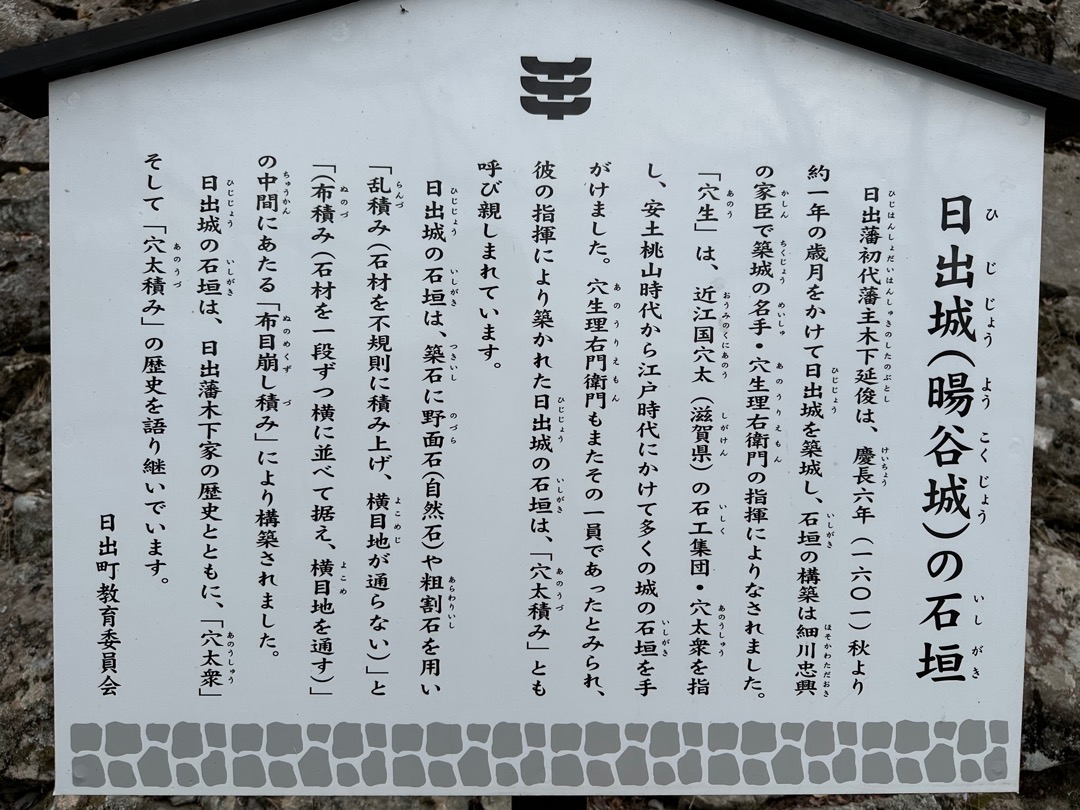 日出城（暘谷城）の石垣
日出藩初代藩主木下延俊は、慶長六年（一六〇一）秋より
約一年の歳月をかけて日出城を築城し、石垣の構築は細川忠興
の家臣で築城の名手・穴生理右衛門の指揮によりなされました。
「穴生」は、近江国穴太（滋賀県）の石工集団・穴太衆を指
し、安土桃山時代から江戸時代にかけて多くの城の石垣を手
がけました。穴生理右門衛門もまたその一員であったとみられ、
彼の指揮により築かれた日出城の石垣は、「穴太積み」とも
呼び親しまれています。
日出城の石垣は、築石に野面石（自然石）や粗割石を用い
「乱積み（石材を不規則に積み上げ、横目地が通らない）」と
「（布積み（石材を一段ずつ横に並べて据え、横目地を通す）」
の中間にあたる「布目崩し積み」により構築されました。
日出城の石垣は、日出藩木下家の歴史とともに、「穴太衆」
そして「穴太積み」の歴史を語り継いでいます。
日出町教育委員会